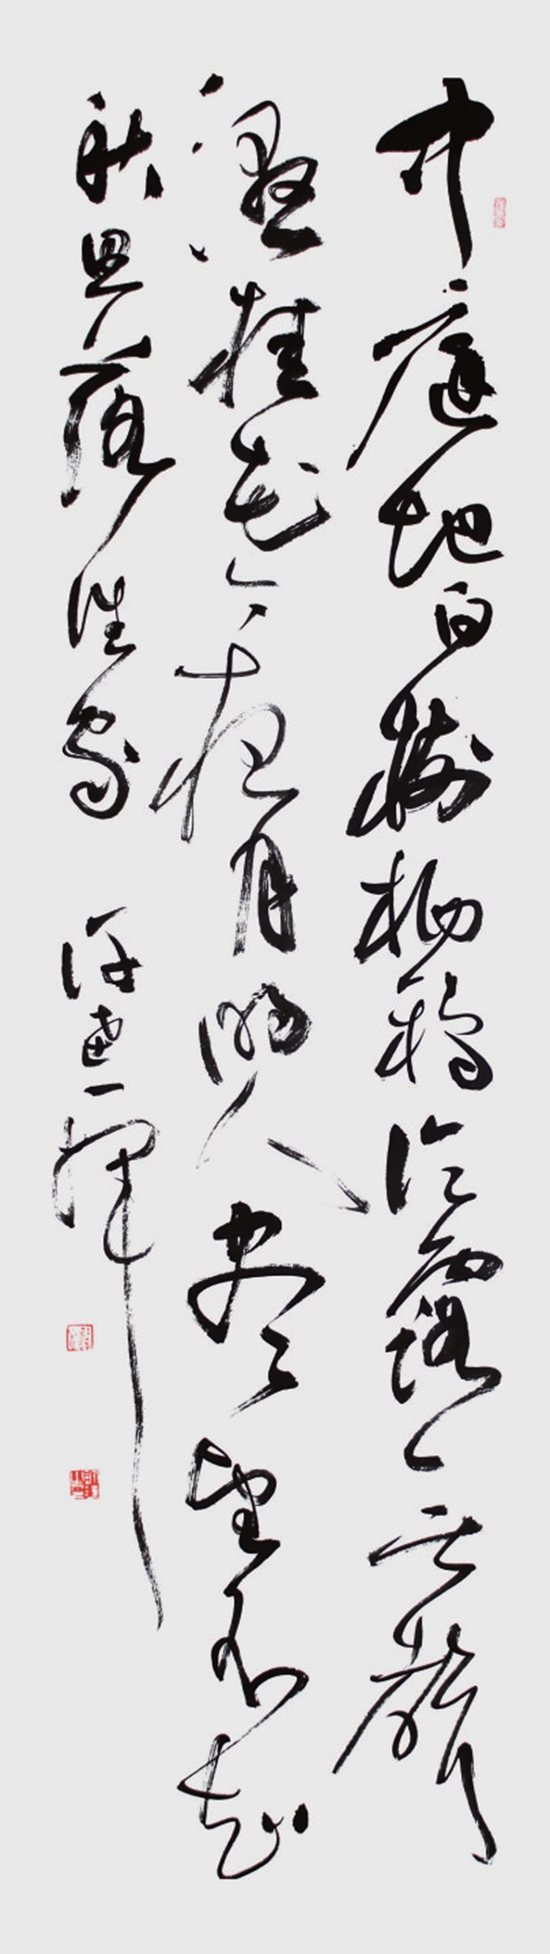 中庭地白树栖鸦冷露无声
湿桂花今夜月明人尽望不知
秋思落谁家